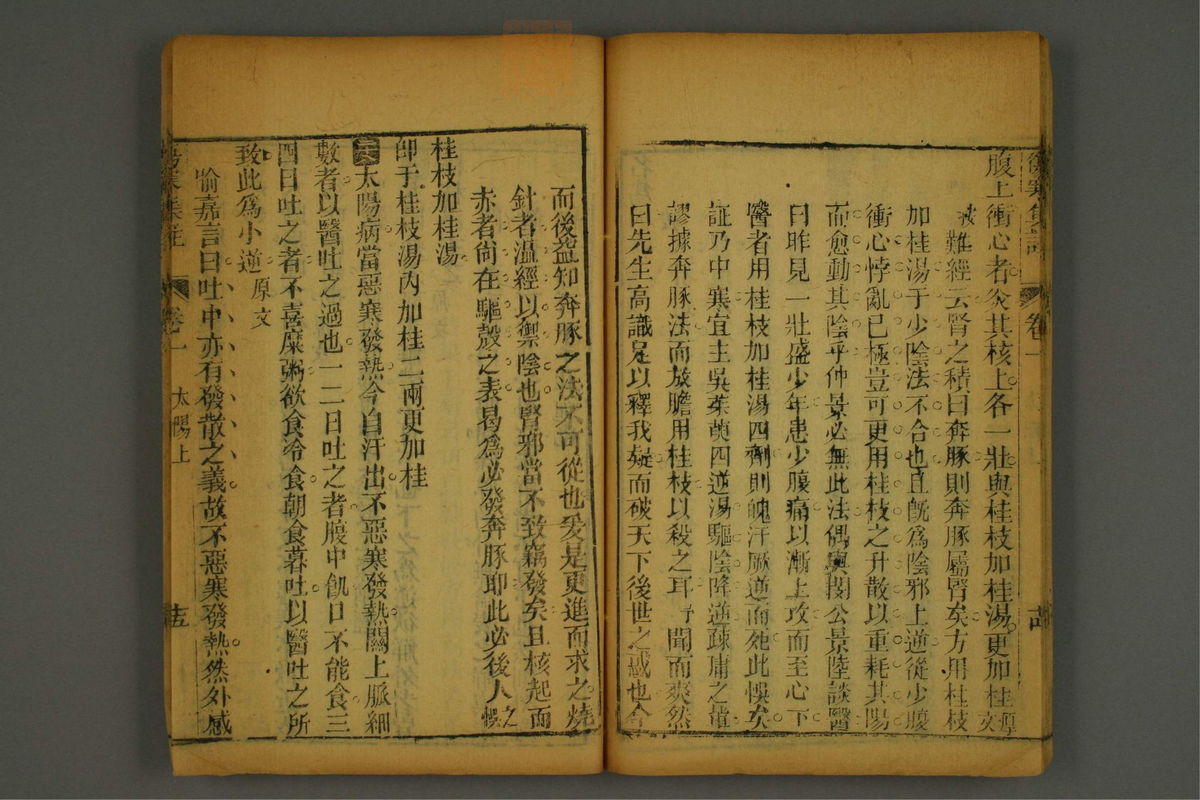 腹上衝心者灸其核上各一壯與桂枝加桂湯更加桂原文
難經云腎之積曰奔豚則奔豚屬腎矣方用桂枝
加桂湯于少陰法不合也且既爲陰邪上逆從少腹
衝心悸亂已極豈可更用桂枝之升散以重耗其陽
而愈動其陰乎仲景必無此法偶與閔公景陸談醫
曰昨見一壯盛少年患少腹痛以漸上攻而至心下
醫者用桂枝加桂湯四劑則魄汗厥逆而死此悞矣
証乃中寒宜主吳茱萸四逆湯驅陰降逆疎庸之輩
謬據奔豚法而放膽用桂枝以殺之耳予聞而爽然
曰先生高識足以釋我疑而破天下後世之惑也今
卷一
而後益知奔豚之法不可從也爰是更進而求之燒
針者溫經以禦陰也腎邪當不致竊發矣且核起而
赤者尙在驅殼之表曷爲必發奔豚耶此必後人之悞
桂枝加桂湯
卽于桂枝湯內加桂二兩更加桂
太陽病當惡寒發熱今自汗出不惡寒發熱關上脈細
數者以醫吐之過也一二日吐之者腹中飢口不能食三
四日吐之者不喜糜粥欲食冷食朝食暮吐以醫吐之所
致此爲小逆原文
喻嘉言曰吐中亦有發散之義故不惡寒發熱然外感
卷一 太陽上 十五